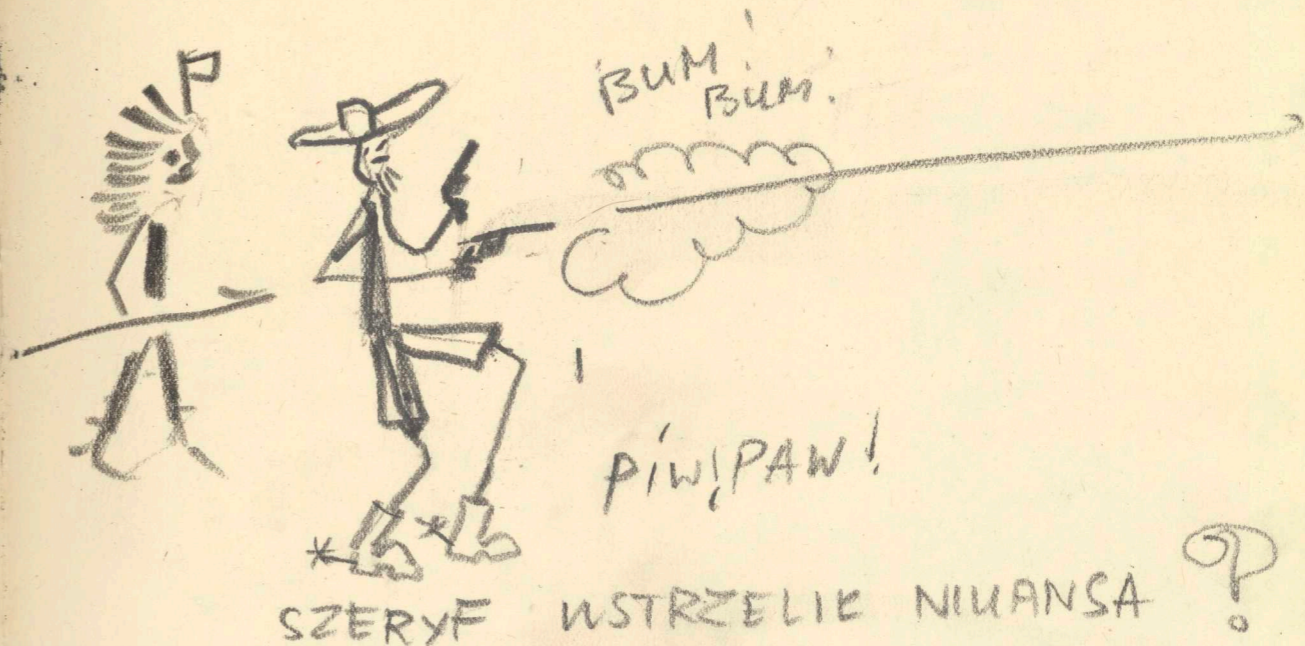 BUM!
BUM!
PIW! PAW!
SZERYF USTRZELIŁ NIUANSA ?